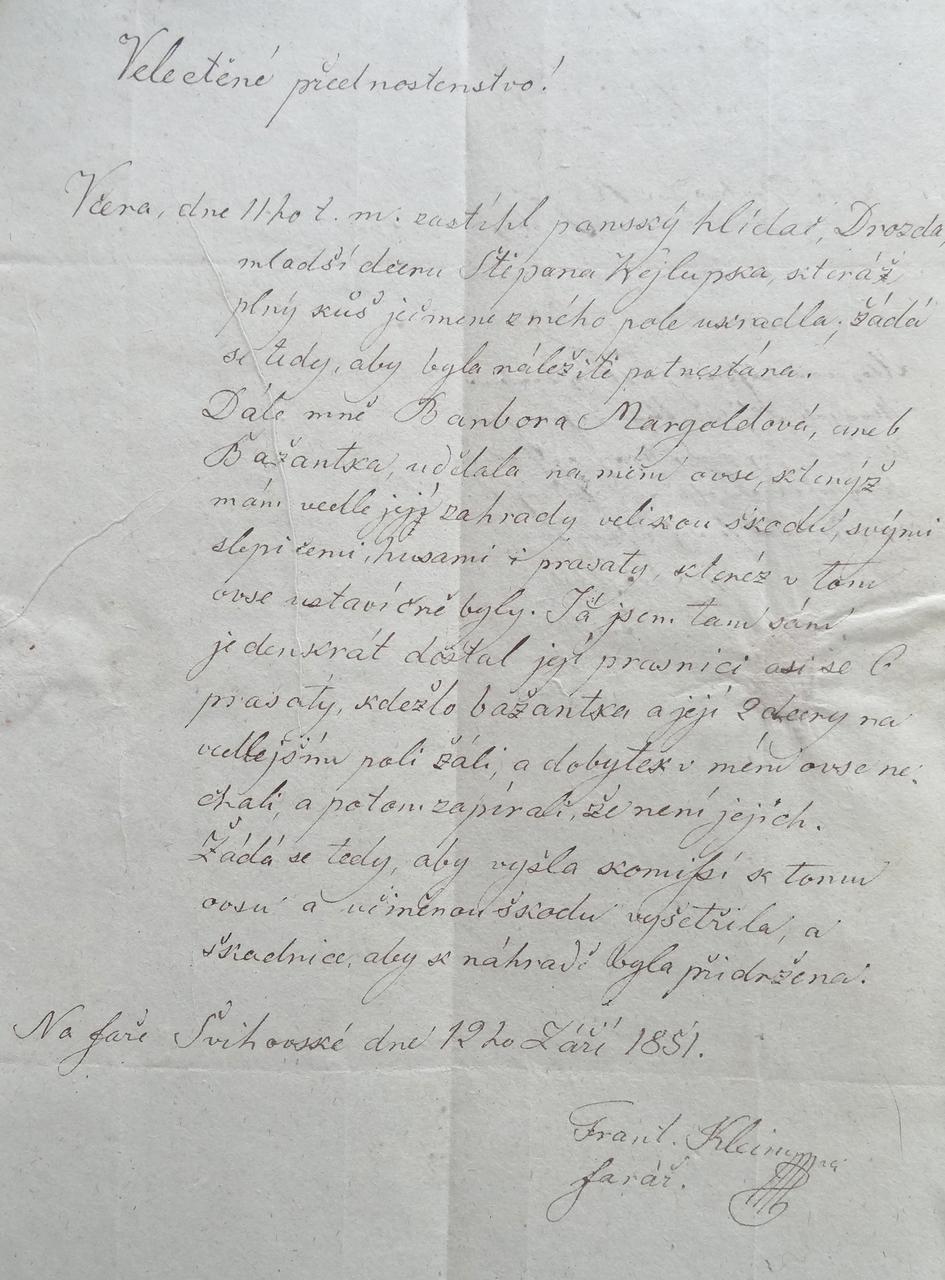 Velectěné přednostenstvo!
Včera, dne 11ho t. m. zastihl panský hlídač, Drozda
mladší dceru Štěpana Wejlupska, kteráž
plný kůš ječmene z mého pole ukradla; žádá
se tedy, aby byla náležitě potrestána.
Dále mně Barbora Margoldová, aneb
Bažantka, udělala na mém ovse, kterýž
mám vedle její zahrady velikou škodu, svými
slepicemi, husami i prasaty, kteréž v tom
ovse ustavičně byly. Já jsem tam sám
jedenkrát dostal její prasnici asi se 6
prasaty, kdežto bažantka a její 2 dcery na
vedlejším poli žali, a dobytek v mém ovse ne-
chali, a potom zapírali, že není jejich.
Žádá se tedy, aby vyšla komissí k tomu
ovsu a učiněnou škodu vyšetřila, a
škodnice, aby k náhradě byla přidržena.
Na faře Švihovské dne 12ho Září 1851.
Frant. Klein
farář.